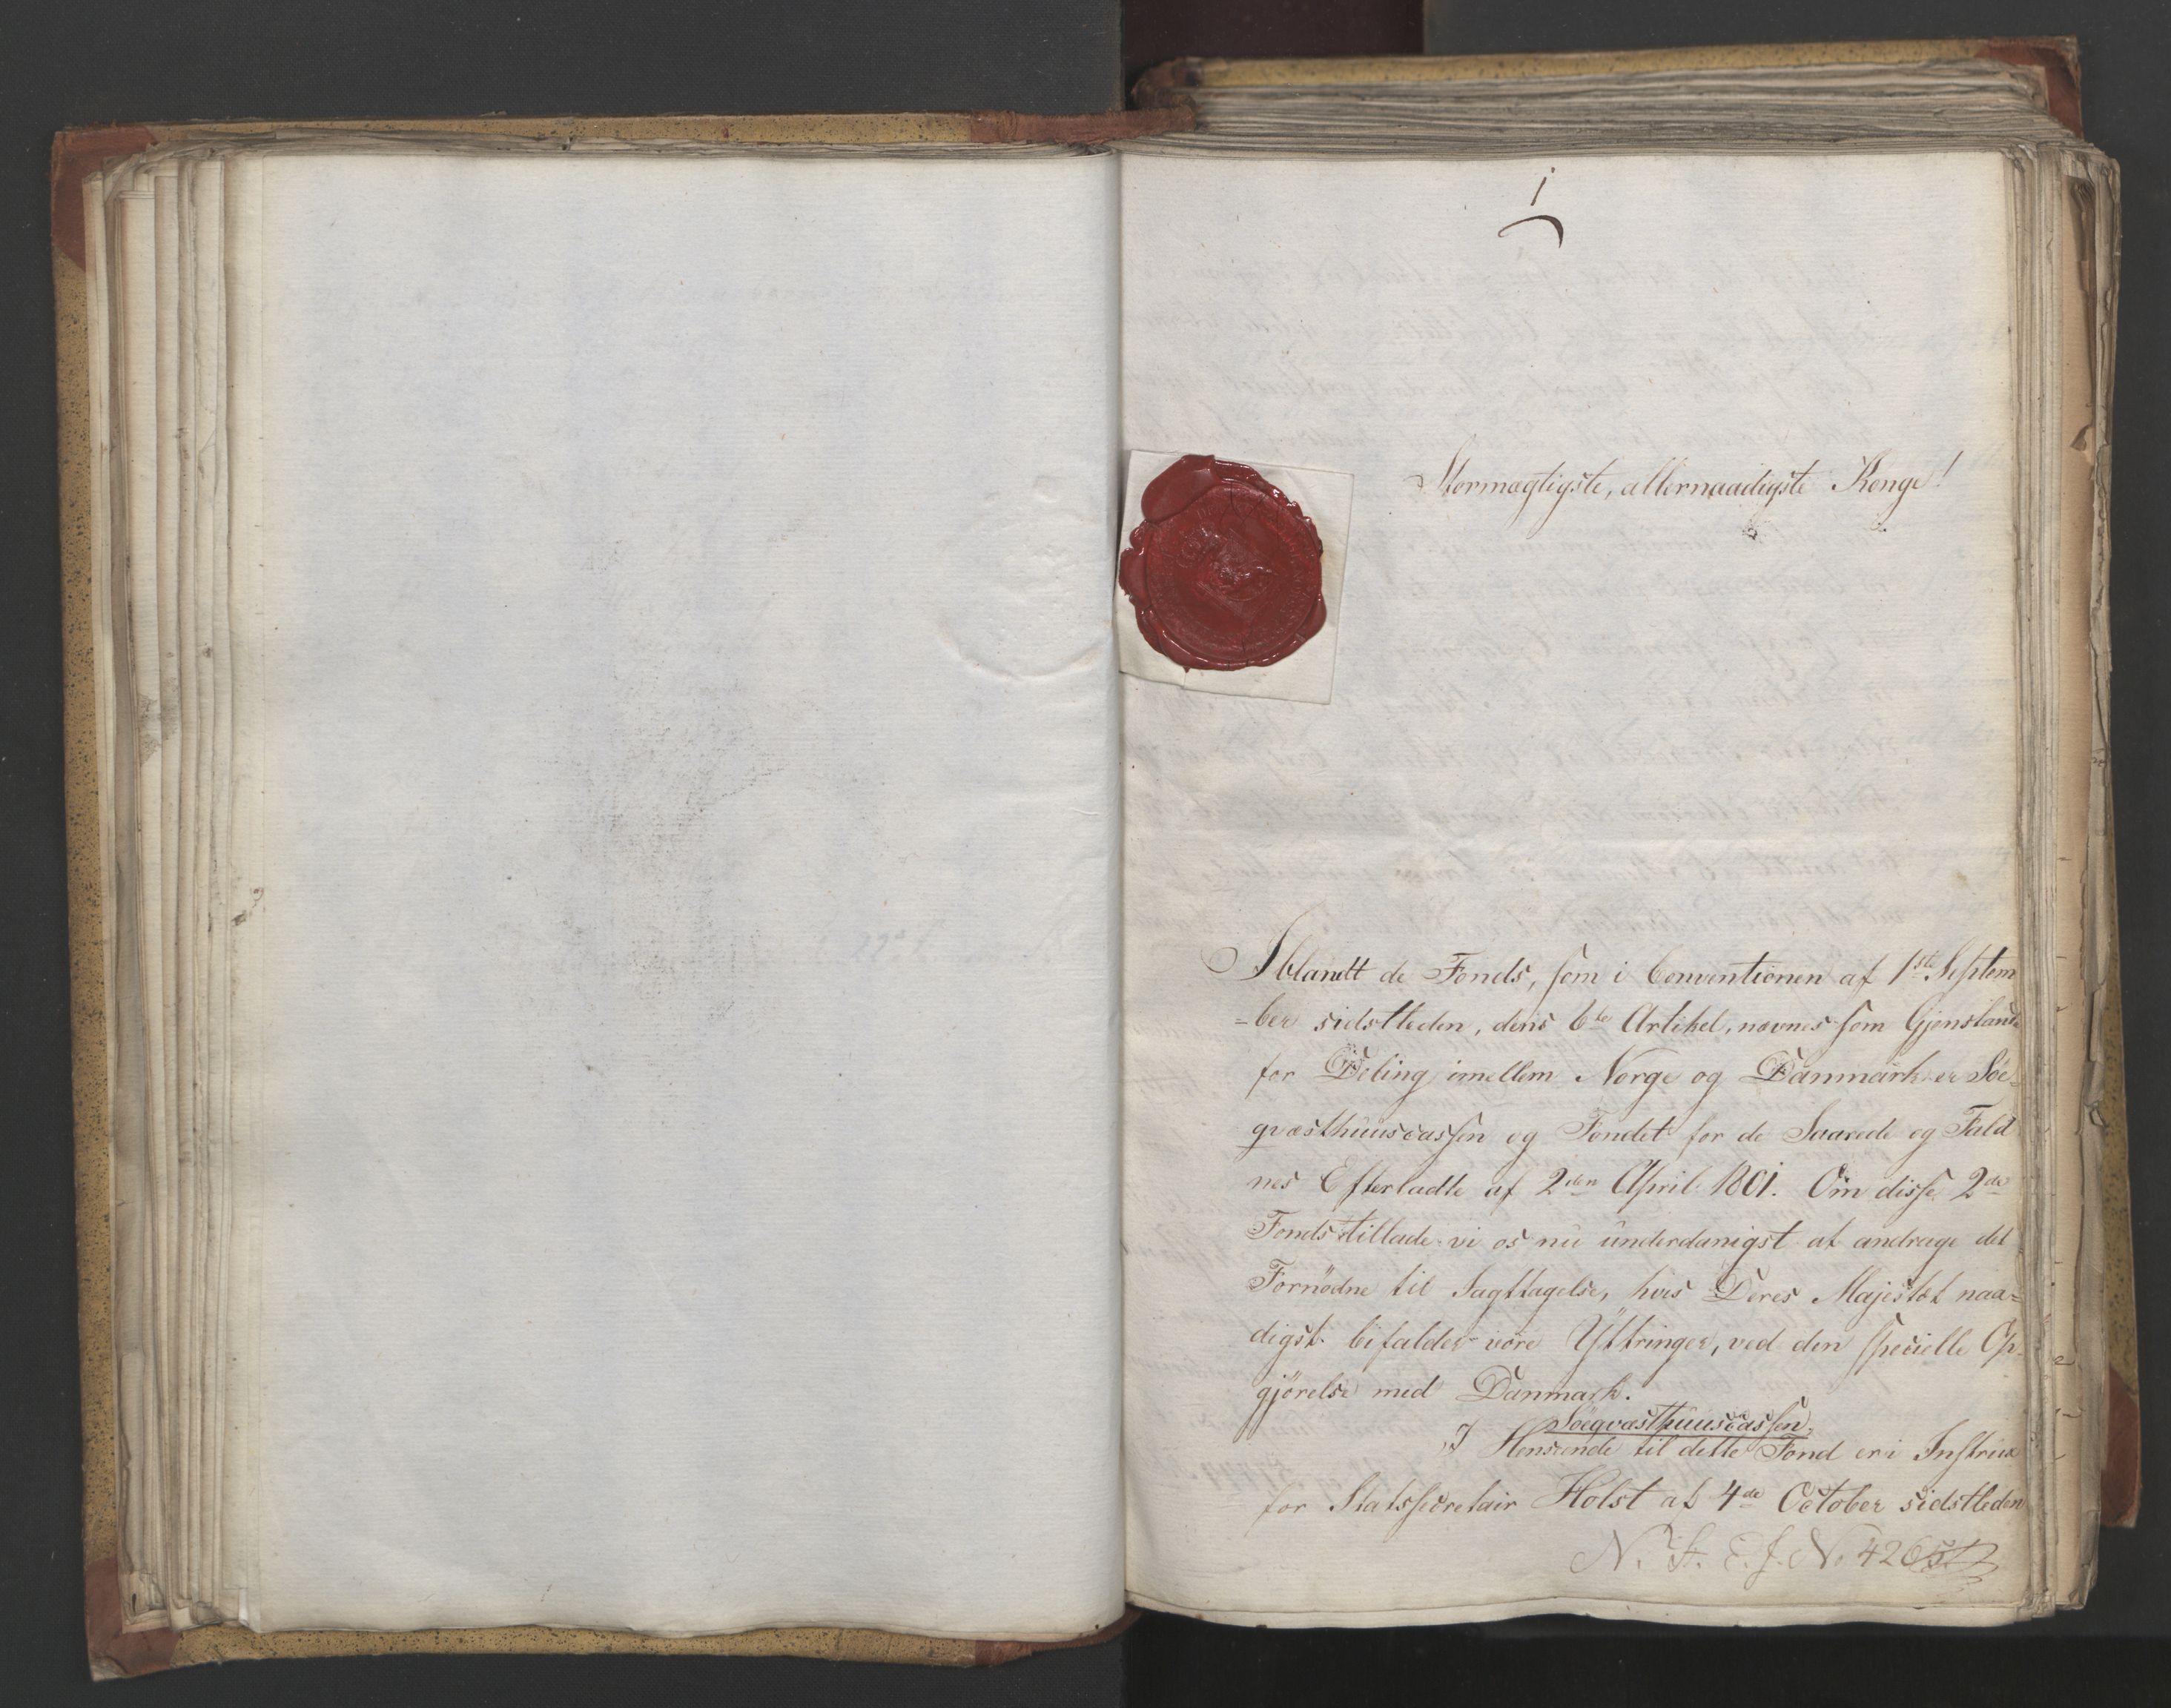 i
Stormægtigste, allernaadigste Konge!
Iblandt de Fonds, som i Conventionen af 1ste Septem
-ber sidstleden, dens 6te Artikel, nævnes som Gjenstand
for Deling imellem Norge og Danmark er Söe-
qvæsthuuscassen og Fondet for de Saarede og Fald
nes Efterladte af 2den April 1801. Om disse 2de
Fonds tillade vi os nu underdanigst at andrage det
Fornödne til Iagttagelse, hvis Deres Majestæt naa-
digst bifalder vore Yttringer, ved den specielle Op-
gjörelse med Danmark.
Söeqvæsthuuscassen.
I Henseende til dette Fond er i Instrux
for Statssecretair Holst af 4de October sidstleden
N. St. E. J. No 426